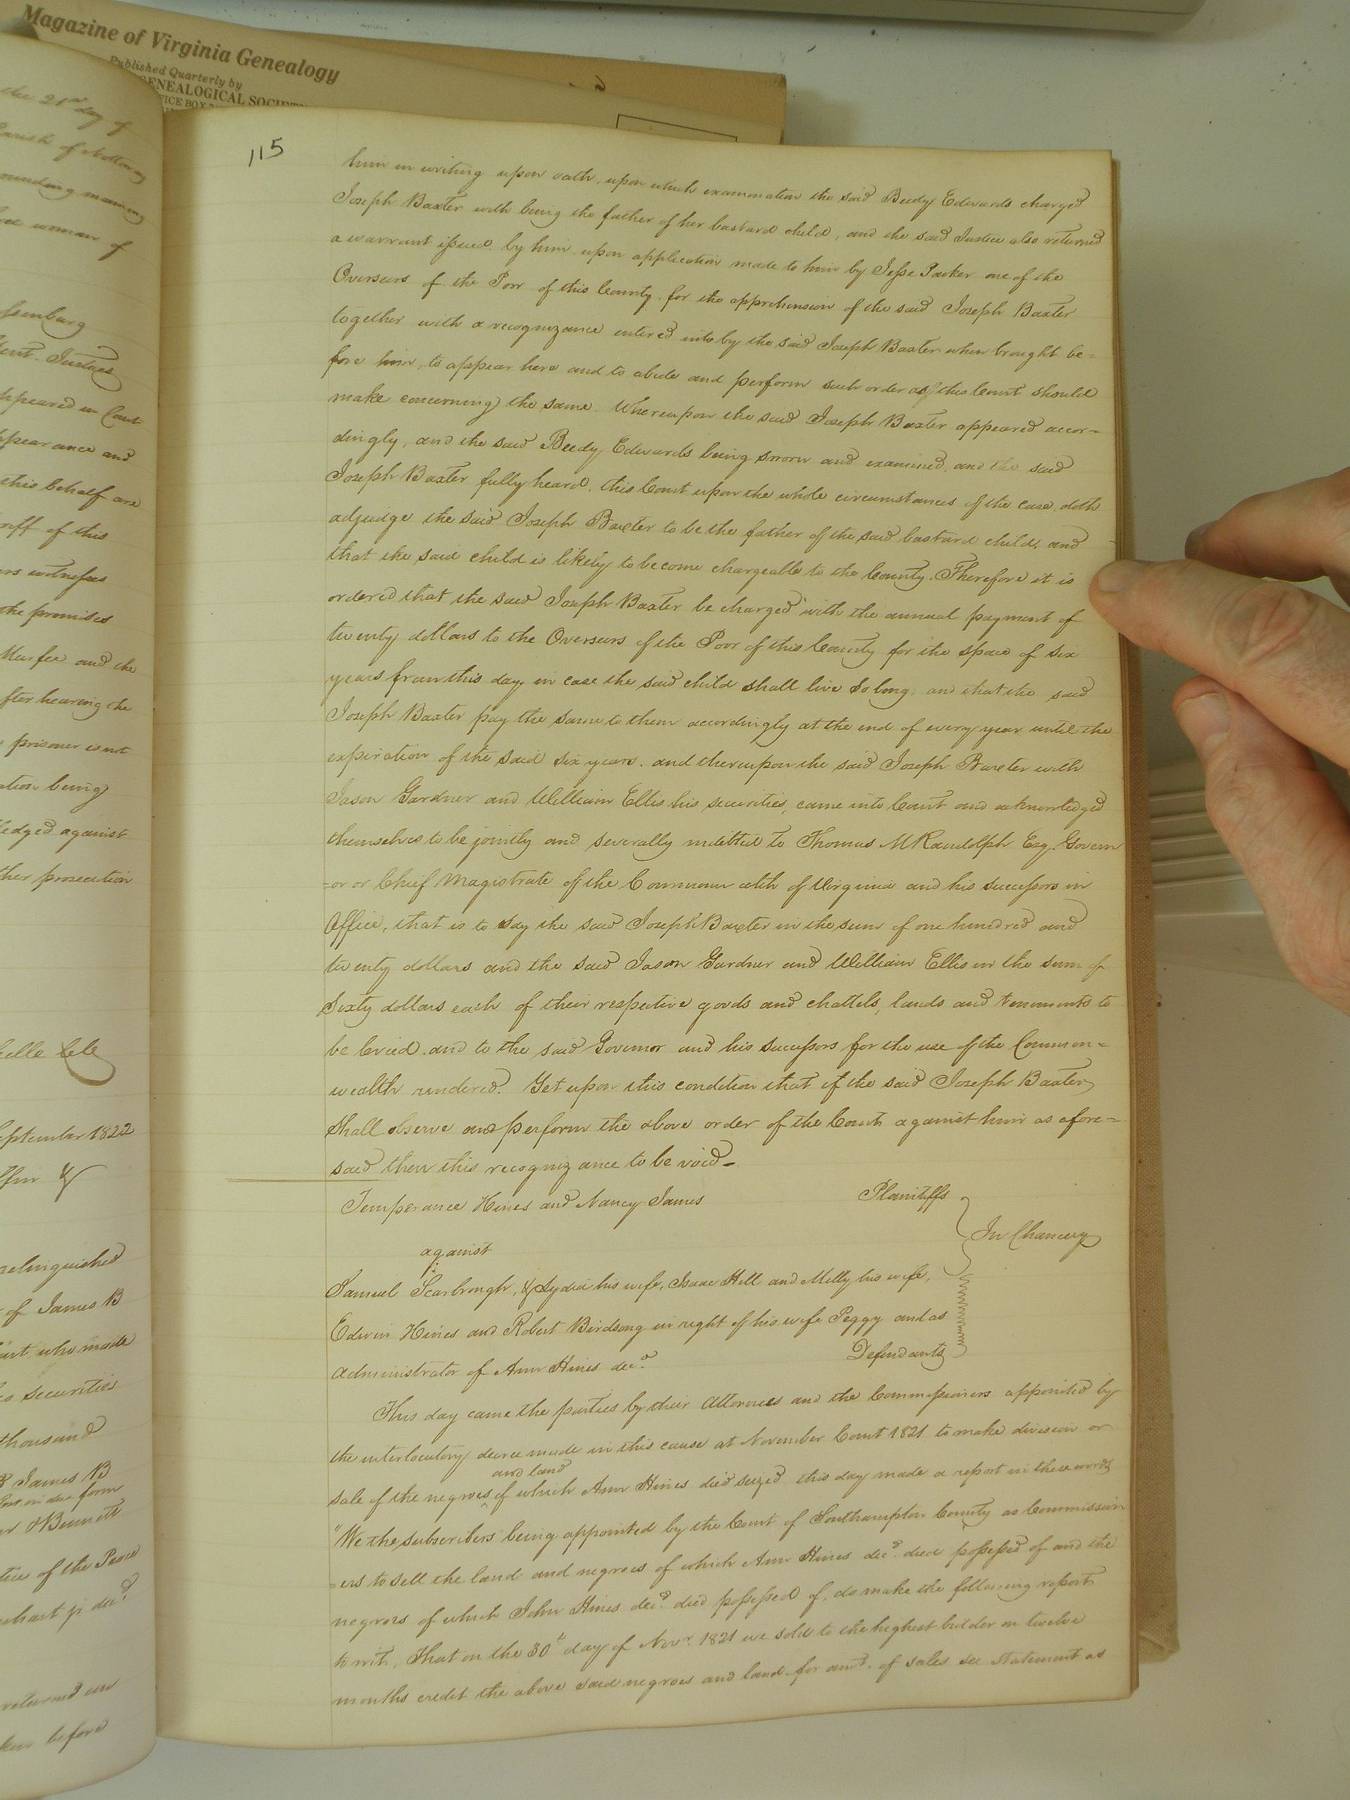 Magazine of Virginia Genealogy
Published Quarterly by
GENEALOGICAL SOCIETY
115
him in writing upon oath, upon which examination the said Beedy Edwards charged
Joseph Baxter with being the father of her bastard child, and the said Justice also returned
a warrant issued by him upon application made to him by Jesse Parker one of the
Overseers of the Poor of this County for the apprehension of the said Joseph Baxter
together with a recognizance entered into by the said Joseph Baxter when brought be-
fore him, to appear here and to abide and perform such order as this Court should
make concerning the same. Whereupon the said Joseph Baxter appeared accor-
dingly, and the said Beedy Edwards being sworn and examined, and the said
Joseph Baxter fully heard, this Court upon the whole circumstances of the case doth
adjudge the said Joseph Baxter to be the father of the said bastard child, and
that the said child is likely to become chargeable to the County. Therefore it is
ordered that the said Joseph Baxter be charged with the annual payment of
twenty dollars to the Overseers of the Poor of this County for the space of six
years from this day, in case the said child shall live so long, and that the said
Joseph Baxter pay the same to them accordingly at the end of every year until the
expiration of the said six years. and thereupon the said Joseph Baxter with
Jason Gardner and William Ellis his securities, came into Court and acknowledged
themselves to be jointly and severally indebted to Thomas M Randolph Esq. Govern
=or or Chief Magistrate of the Commonwealth of Virginia and his successors in
Office, that is to say the said Joseph Baxter in the sum of one hundred and
twenty dollars and the said Jason Gardner and William Ellis in the sum of
Sixty dollars each of their respective goods and chattels, lands and tenements to
be levied and to the said Governor and his successors for the use of the Common=
wealth rendered. Yet upon this condition that if the said Joseph Baxter
shall observe and perform the above order of the Court against him as afore=
said then this recognizance to be void-
Temperance Hines and Nancy James Plaintiffs
In Chancery
against
Samuel Scarbrough, & Lydia his wife, Isaac Hill and Milly his wife,
Edwin Hines and Robert Birdsong in right of his wife Peggy and as
administrator of Ann Hines decd. Defendants
This day came the parties by their Attornies and the Commissioners appointed by
the interlocutory decree made in this cause at November Court 1821 to make division or
and land
sale of the negroes of which Ann Hines died seized this day made a report in these words
"We the subscribers being appointed by the Court of Southampton County as Commission
=ers to sell the land and negroes of which Ann Hines decd. died possessed of and the
negroes of which John Hines decd. died possessed of, do make the following report
to wit, That on the 30th day of Novr. 1821 we sold to the highest bidder on twelve
months credit the above said negroes and land for amt. of sales see statement as
the 21st day of
woman of
Justices
appeared in Court
appearance and
this behalf are
of this
witnesses
the premises
and the
after hearing the
prisoner is not
being
against
prosecution
September 1822
relinquished
of James B
who made
securities
thousand
James B
form
Bennett
of the Peace
decd.
returned
before